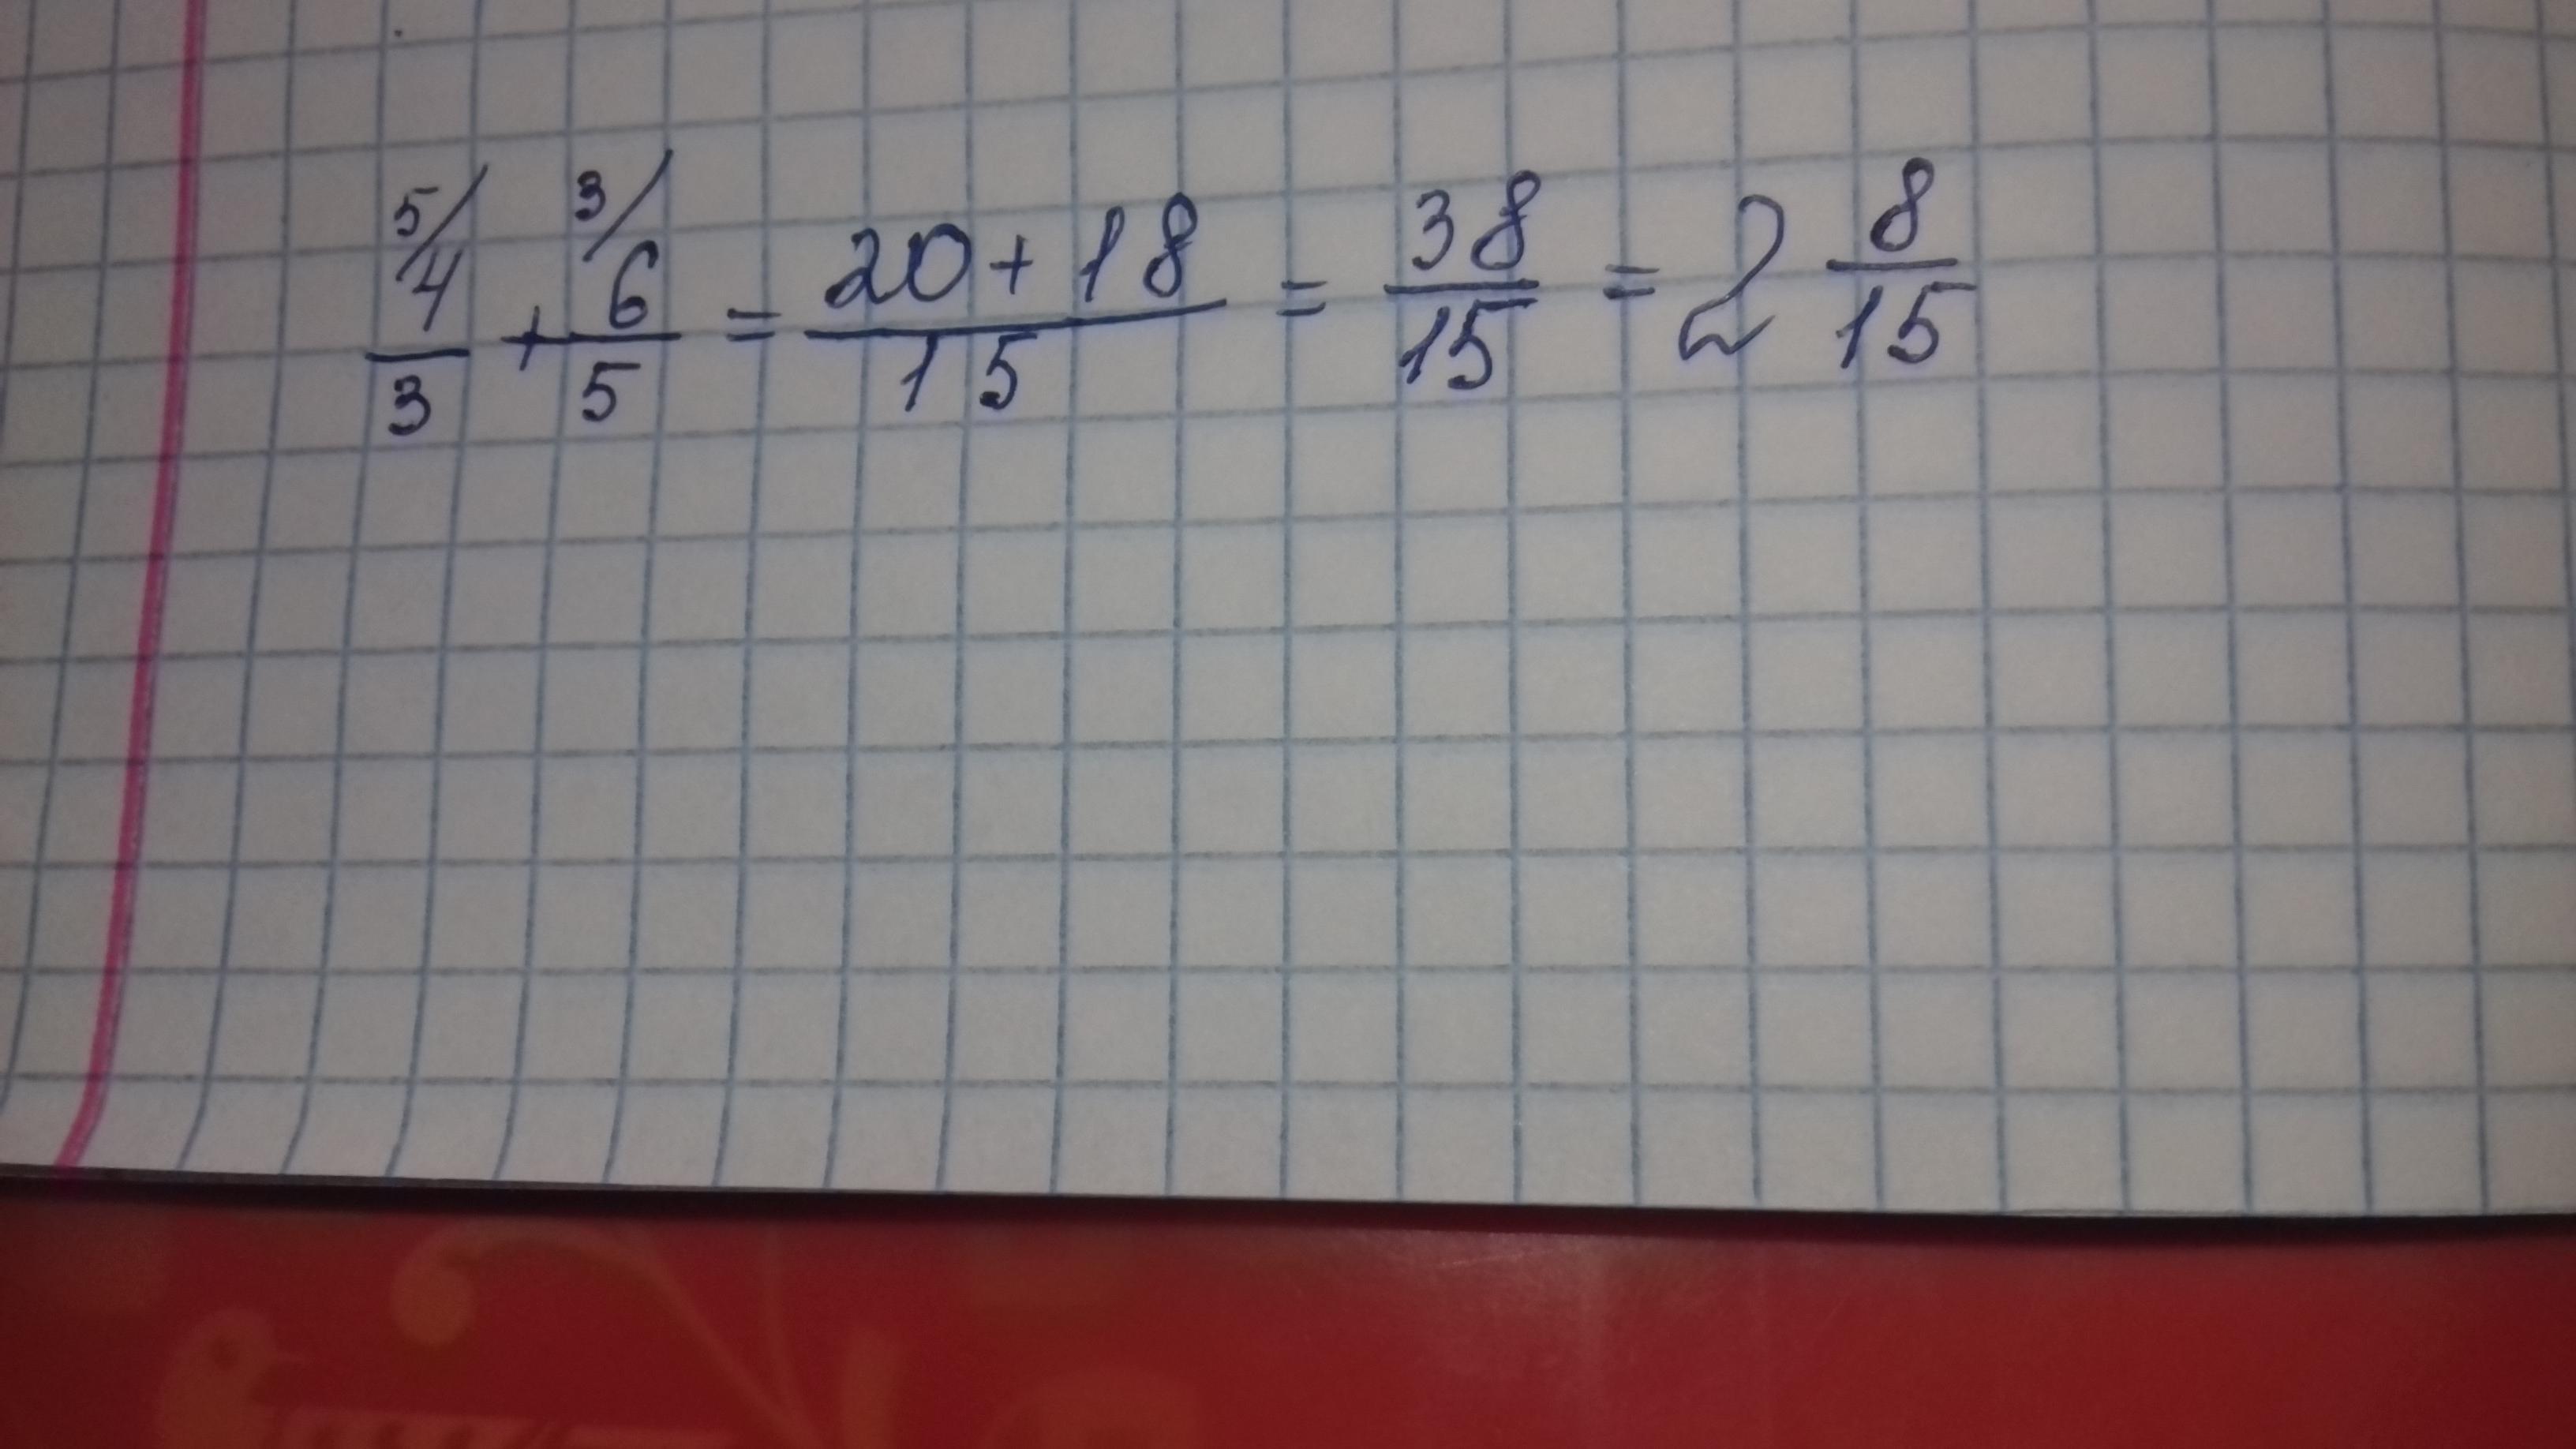 5/4/3 + 3/6/5 = 20+18/15 = 38/15 = 2 8/15